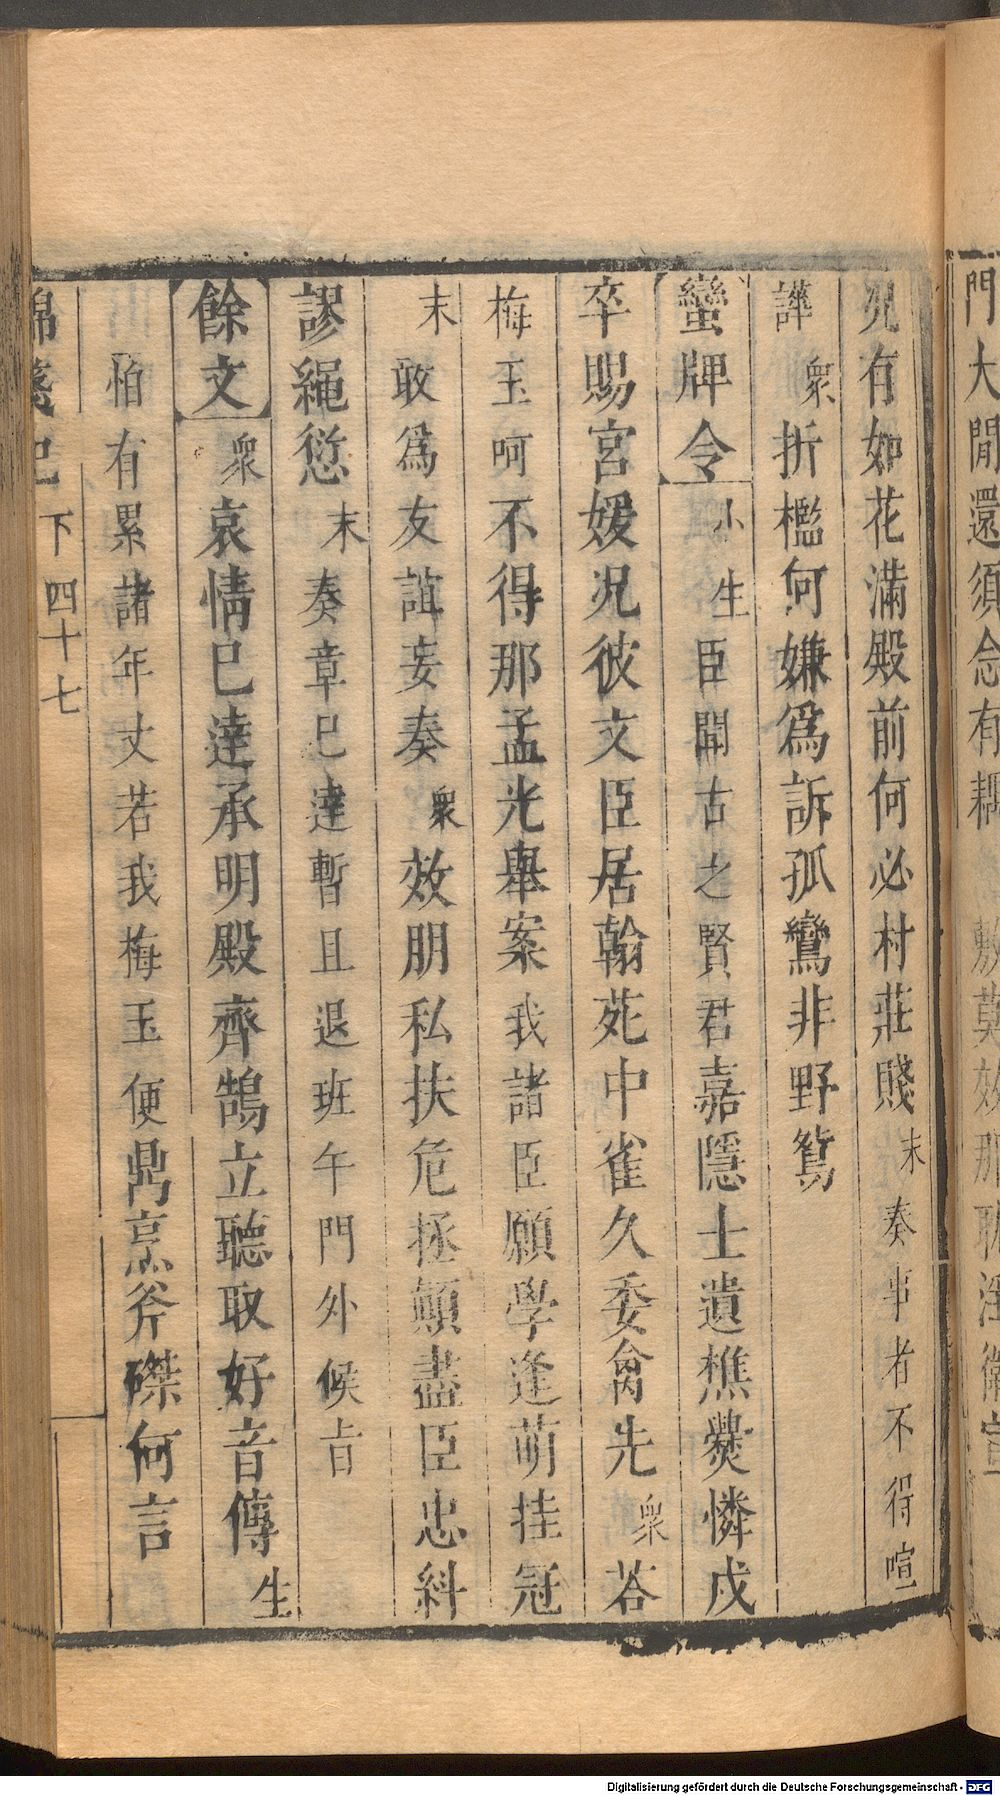 門大閒還須念有耦 敷莫效那耽淫衛宣
況有如花滿殿前何必村莊賤末奏事者不得喧
譁衆折檻何嫌爲訴孤鸞非野鴛
蠻牌令小生臣聞古之賢君嘉隱士遺樵爨憐戍
卒賜宮媛况彼文臣居翰苑中雀久委禽先衆若
梅玉呵不得那孟光舉案我諸臣願學逢萌挂冠
末敢爲友誼妄奏衆效朋私扶危拯顛盡臣忠糾
謬繩愆末奏章已達暫且退班午門外候旨
餘文衆哀情已達承明殿齊鵠立聽取好音傳生
怕有累諸年丈若我梅玉便鼎烹斧磔何言
錦箋記 下 四十七
Digitalisierung gefördert durch die Deutsche Forschungsgemeinschaft - DFG